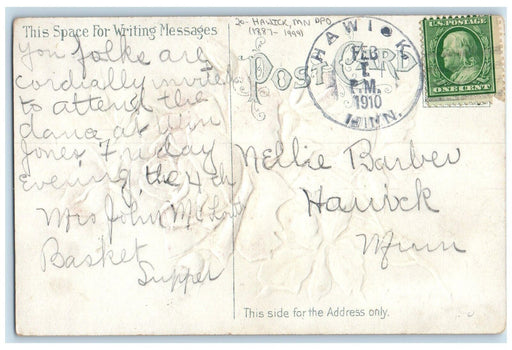 This Space for Writing Messages
You folks are
cordially invited
to attend the
dance at Win
Jones Friday
evening, the 4th
Mrs John
Basket
Supper
20- HAWICK, MN DPO
(1887-1999)
POST CARD
HAWICK
FEB
1
P.M.
1910
MINN.
U.S. POSTAGE
ONE CENT
Nellie Barber
Hawick
Minn
This side for the Address only.